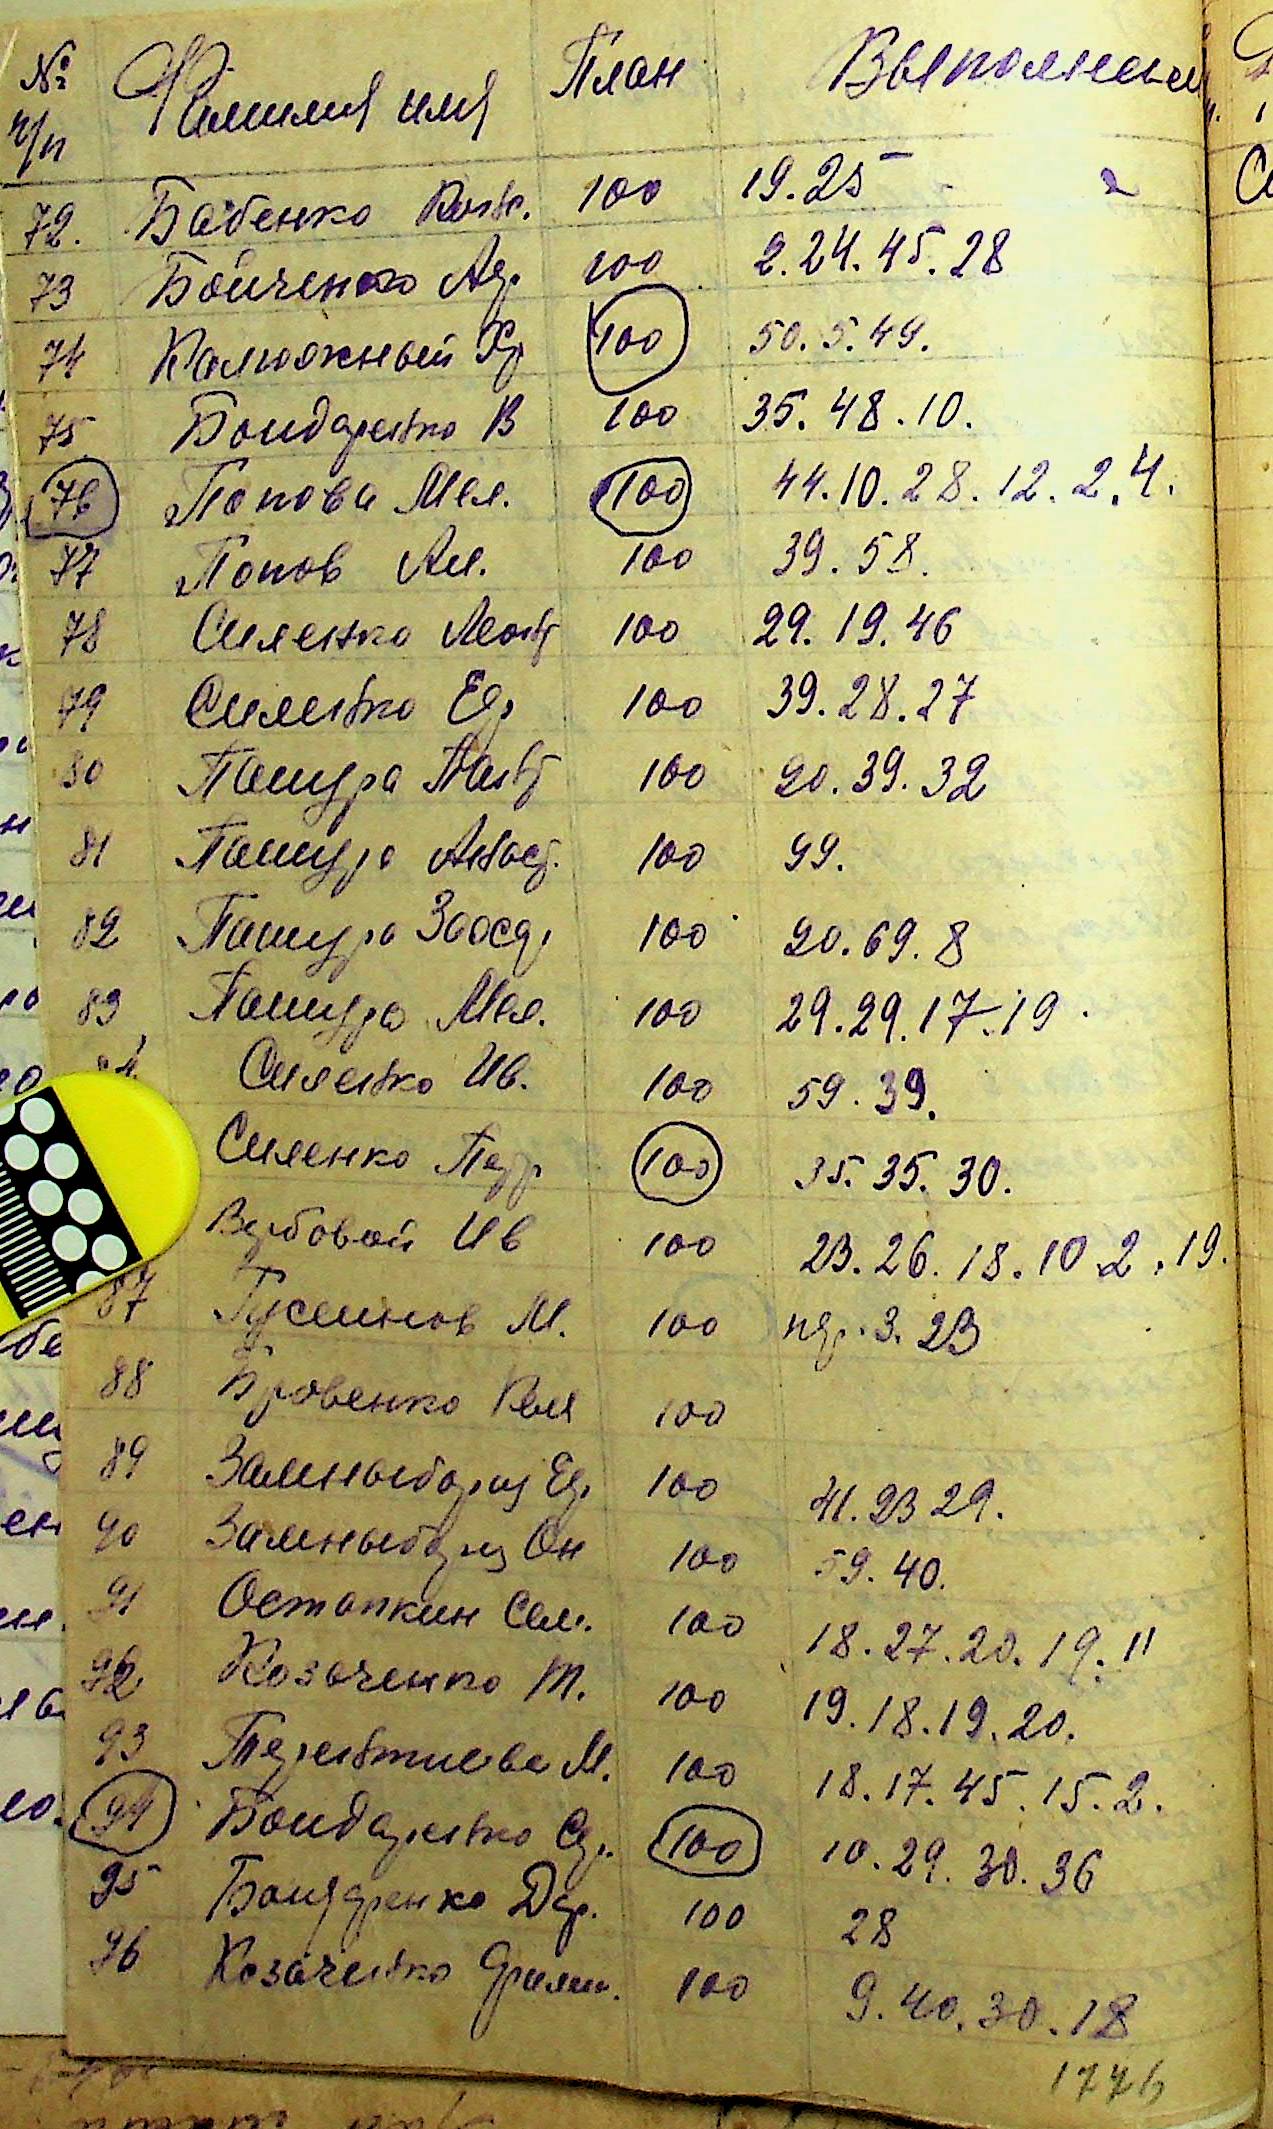 № п/п Фамилия имя План Выполнен
72. Бабенко Конс. 100 19.25
73 Бойченко Ал. 100 2.24.45.28
74 Калюжный Хр 100 50.5.49.
75 Бондаренко В 100 35.48.10.
76 Попова Мел. 100 44.10.28.12.2.4.
77 Попов Ал. 100 39.58.
78 Силенко Леонт 100 29.19.46
79 Силенко Ег. 100 39.28.27
80 Пашура 100 20.39.32
81 Пашура Анаст. 100 99.
82 Пашура 100 20.69.8
83 Пашура Мел. 100 29.29.17.19.
Силенко Ив. 100 59.39.
Силенко Петр. 100 35.35.30.
Вербовой Ив 100 23.26.18.10.2.19.
87 Гусеинов М. 100 3.23
88 Бровенко 100
89 Ег. 100 41.23 29.
90 Он 100 59.40.
91 Остапкин Сем. 100 18.27.20.19.11
92 Козаченко Т. 100 19.18.19.20.
93 Терентиева М. 100 18.17.45.15.2.
94 Бондаренко Ср. 100 10.29.30.36
95 Бондаренко Дар. 100 28
96 Козаченко 100 9.40.30.18
1776